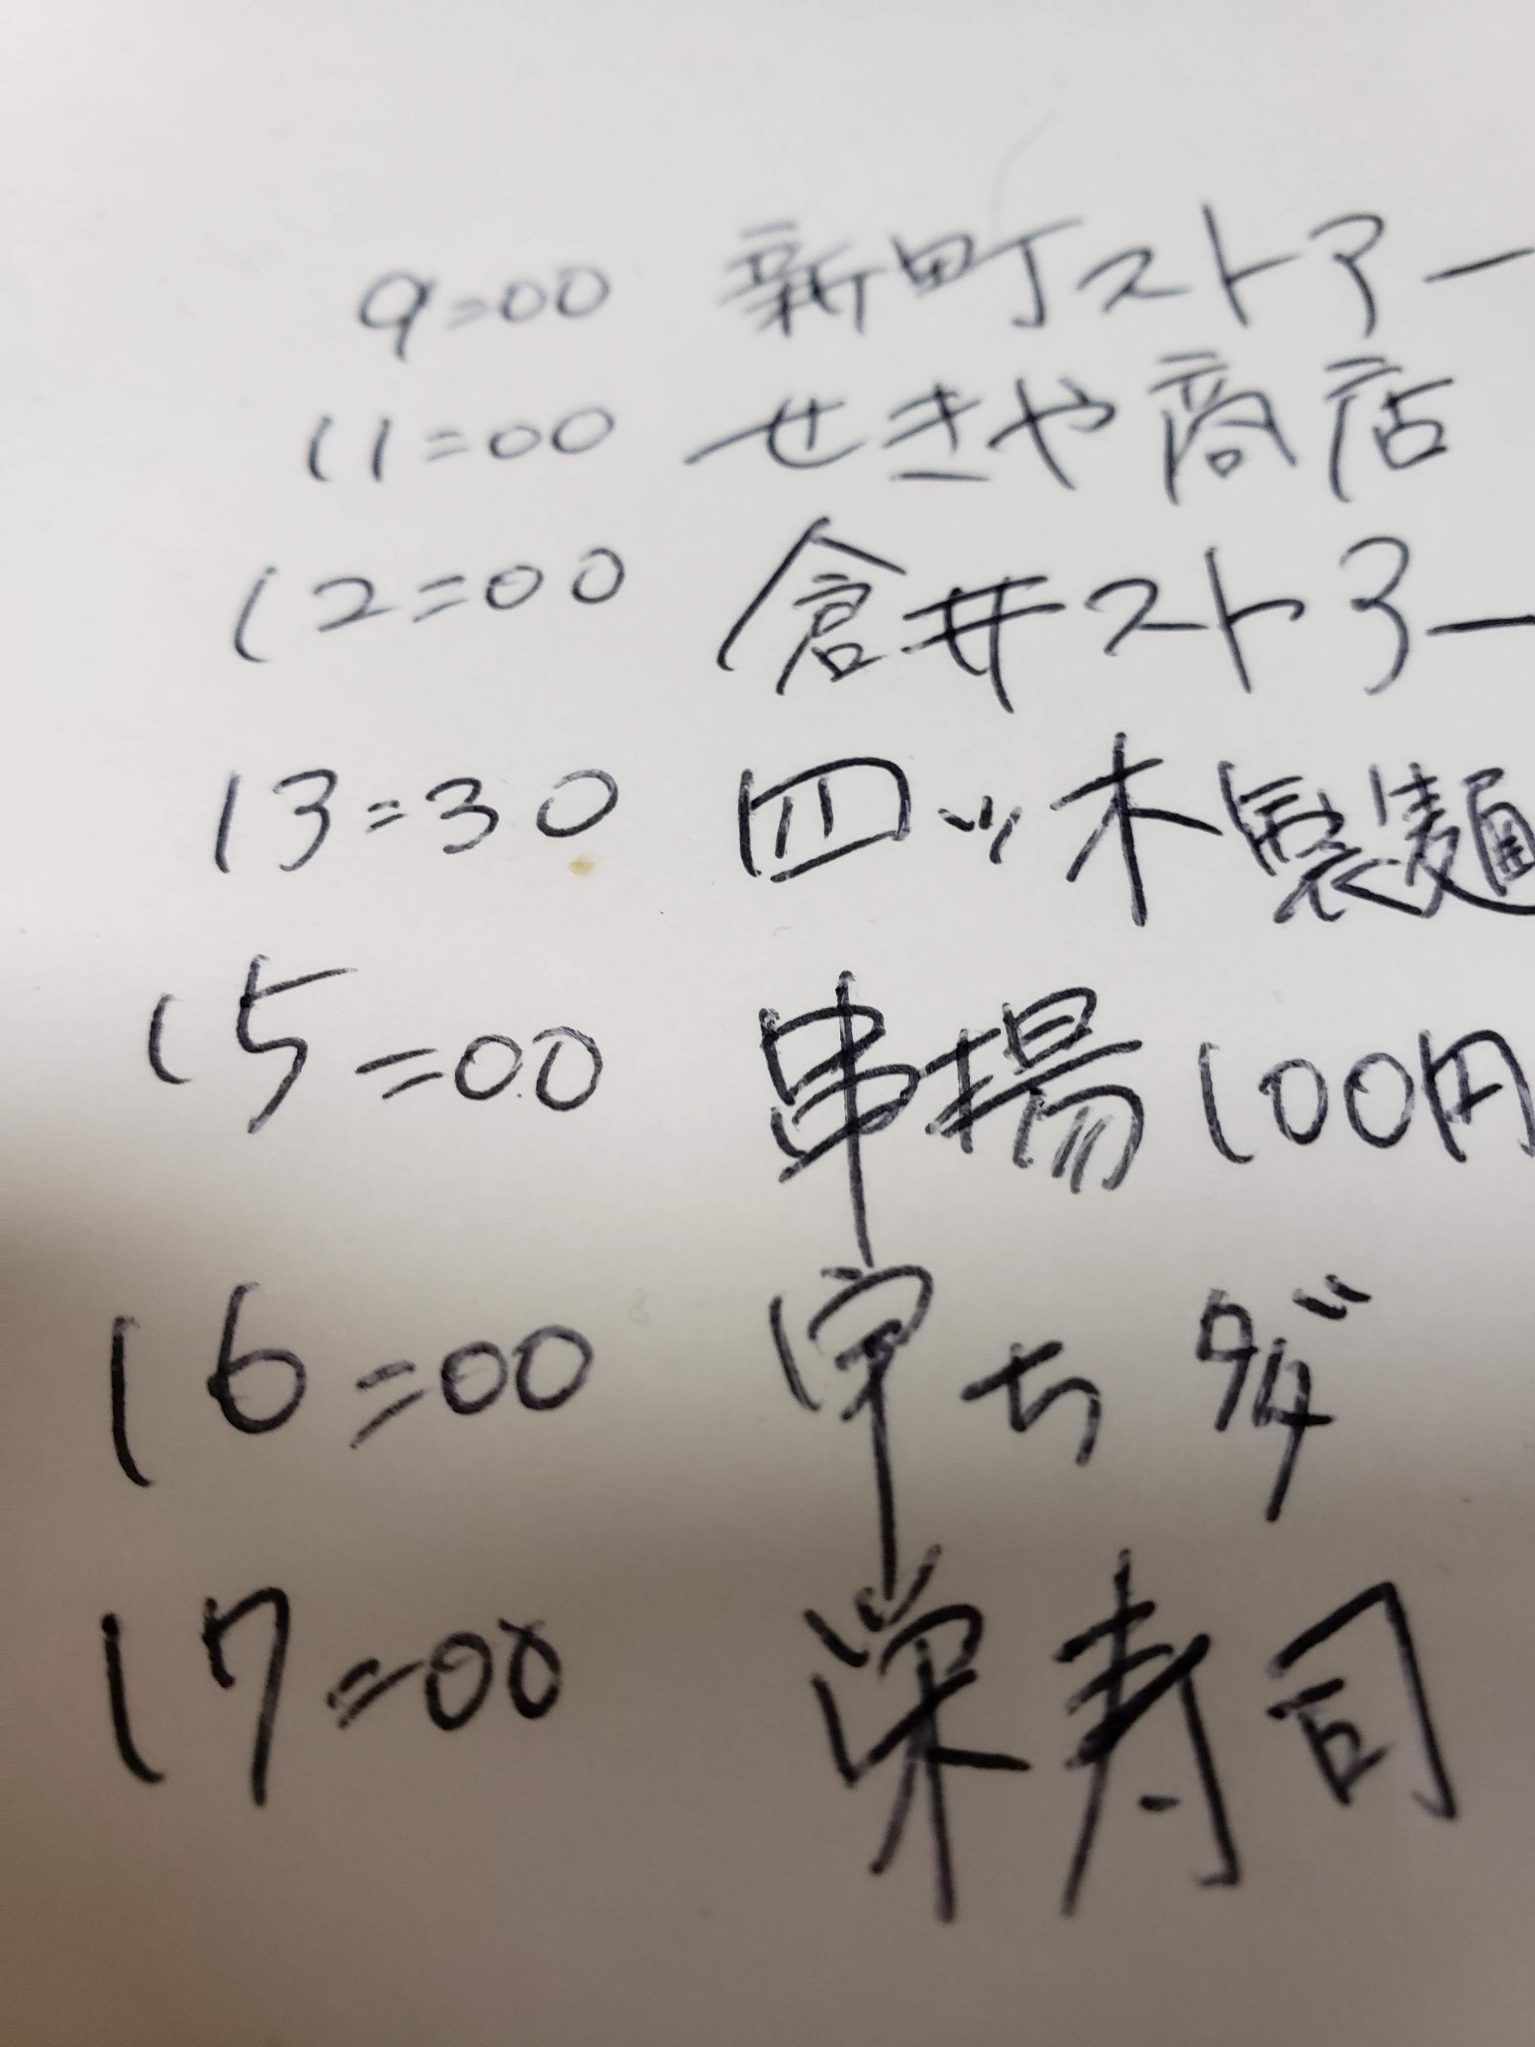 9:00 新町ストアー
11:00 せきや商店
12:00 倉井ストアー
13:30 四ッ木製麺
15:00 串揚100円
16:00 宇ち多゛
17:00 栄寿司